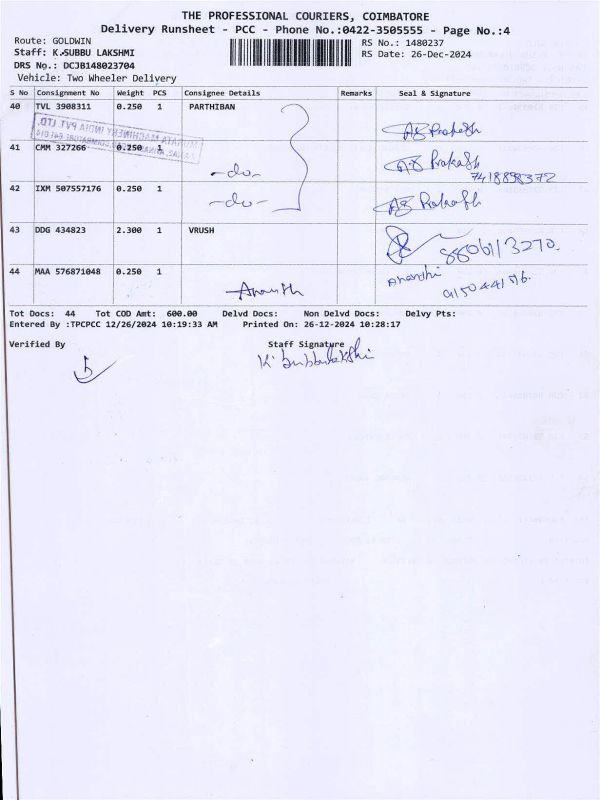 THE PROFESSIONAL COURIERS, COIMBATORE
Delivery Runsheet - PCC - Phone No.:0422-3505555 - Page No.:4
Route: GOLDWIN
RS No.: 1480237
Staff: K.SUBBU LAKSHMI
RS Date: 26-Dec-2024
DRS No.: DCJB148023704
Vehicle: Two Wheeler Delivery
S No Consignment No Weight PCS Consignee Details Remarks Seal & Signature
40 TVL 3908311 0.250 1 PARTHIBAN
AS Prakash
MACHINERY INDIA PVT. LTD.
41 CMM 327266 0.250 1
-do-
AS Prakash
7418898372
42 IXM 507557176 0.250 1
-do-
AS Prakash
43 DDG 434823 2.300 1 VRUSH
8806113270.
44 MAA 576871048 0.250 1
Ananthi
Tot Docs: 44 Tot COD Amt: 600.00 Delvd Docs: Non Delvd Docs: Delvy Pts:
Entered By :TPCPCC 12/26/2024 10:19:33 AM Printed On: 26-12-2024 10:28:17
Verified By Staff Signature
K. Subbulakshi